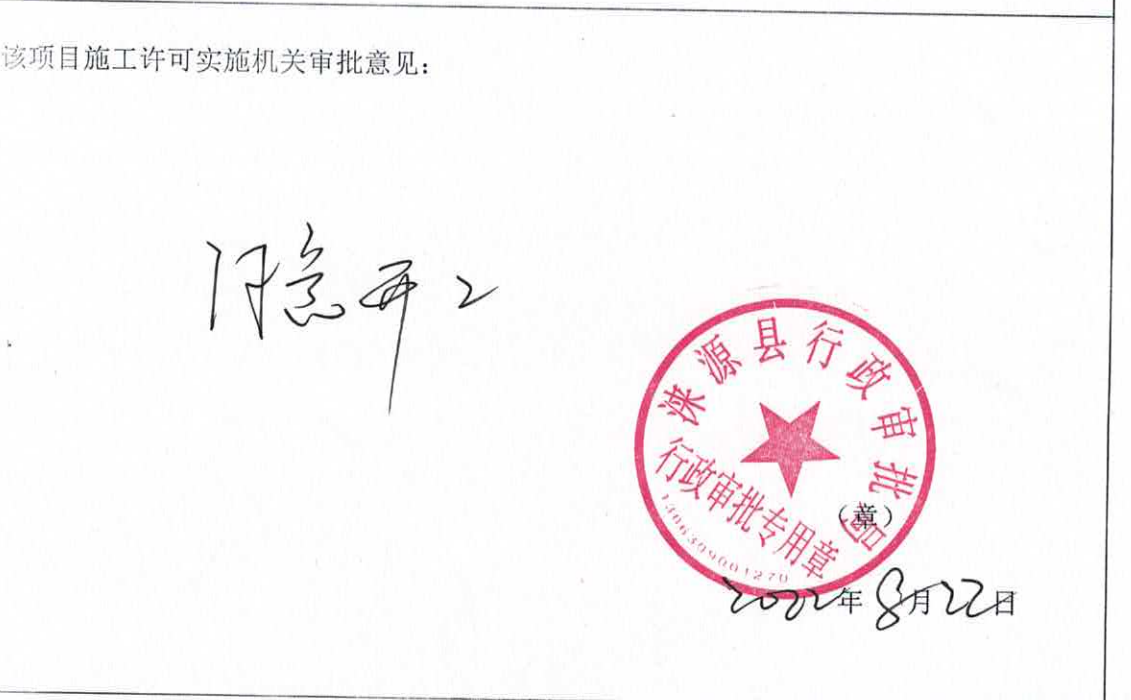 该项目施工许可实施机关审批意见：
同意开工
涞源县行政审批局
行政审批专用章
1306309001270
（章）
2022年8月22日